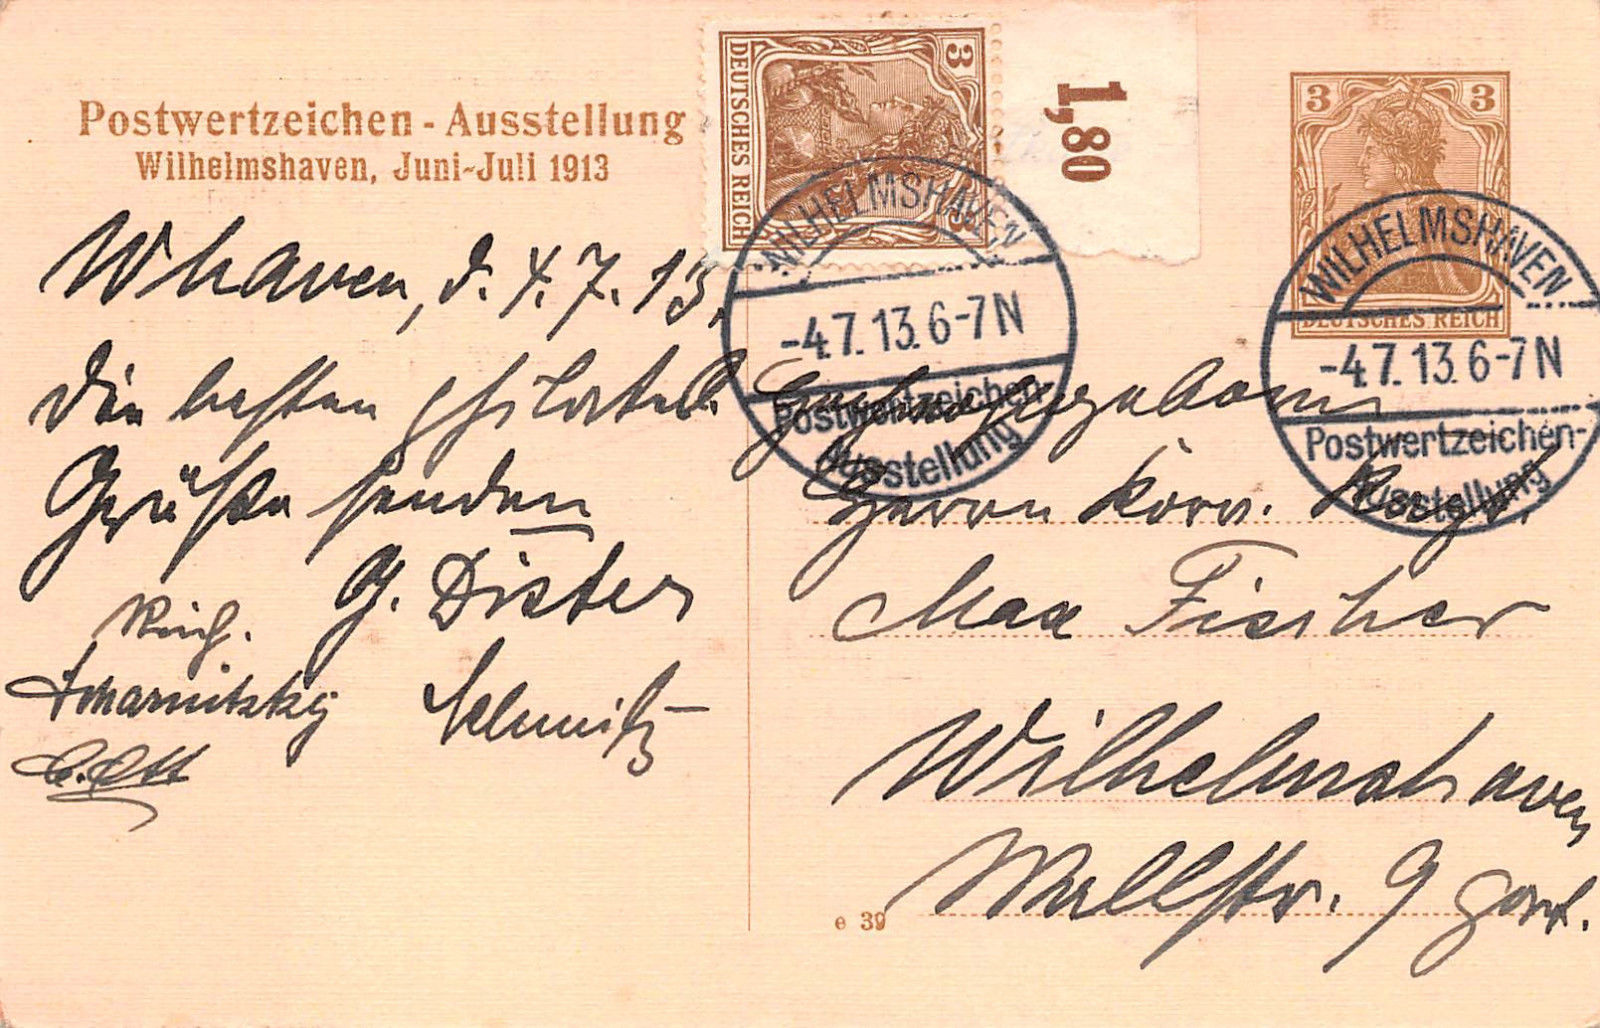 Postwertzeichen - Ausstellung
Wilhelmshaven, Juni-Juli 1913
3
3
DEUTSCHES REICH
1,80
3
3
DEUTSCHES REICH
WILHELMSHAVEN
-4.7.13.6-7N
Postwertzeichen-
Ausstellung
WILHELMSHAVEN
-4.7.13.6-7N
Postwertzeichen-
Ausstellung
Whaven, d. 4.7.13.
Die besten philatel.
Grüße senden
G. Dister
Rich.
Schmitz
Herrn
Max Fischer
Wilhelmshaven
Wallstr. 9
e 39